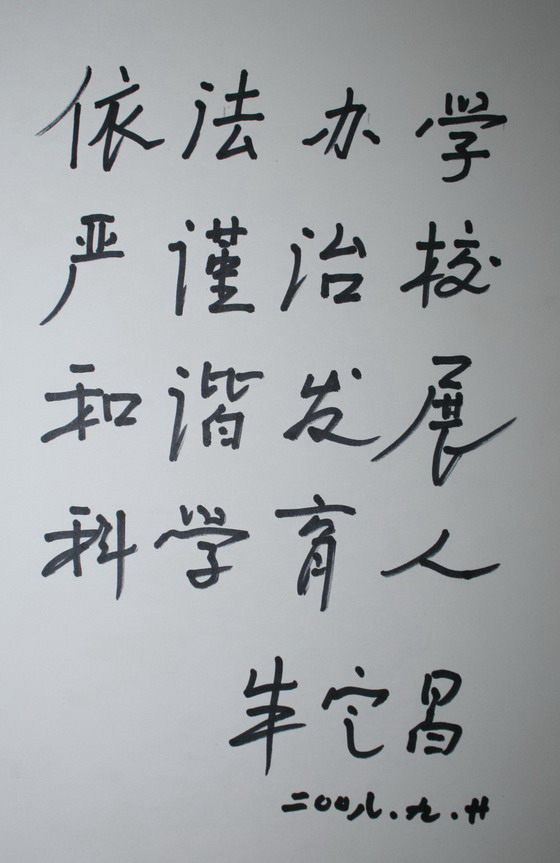 依法办学
严谨治校
和谐发展
科学育人
朱它昌
二〇〇八.九.廿